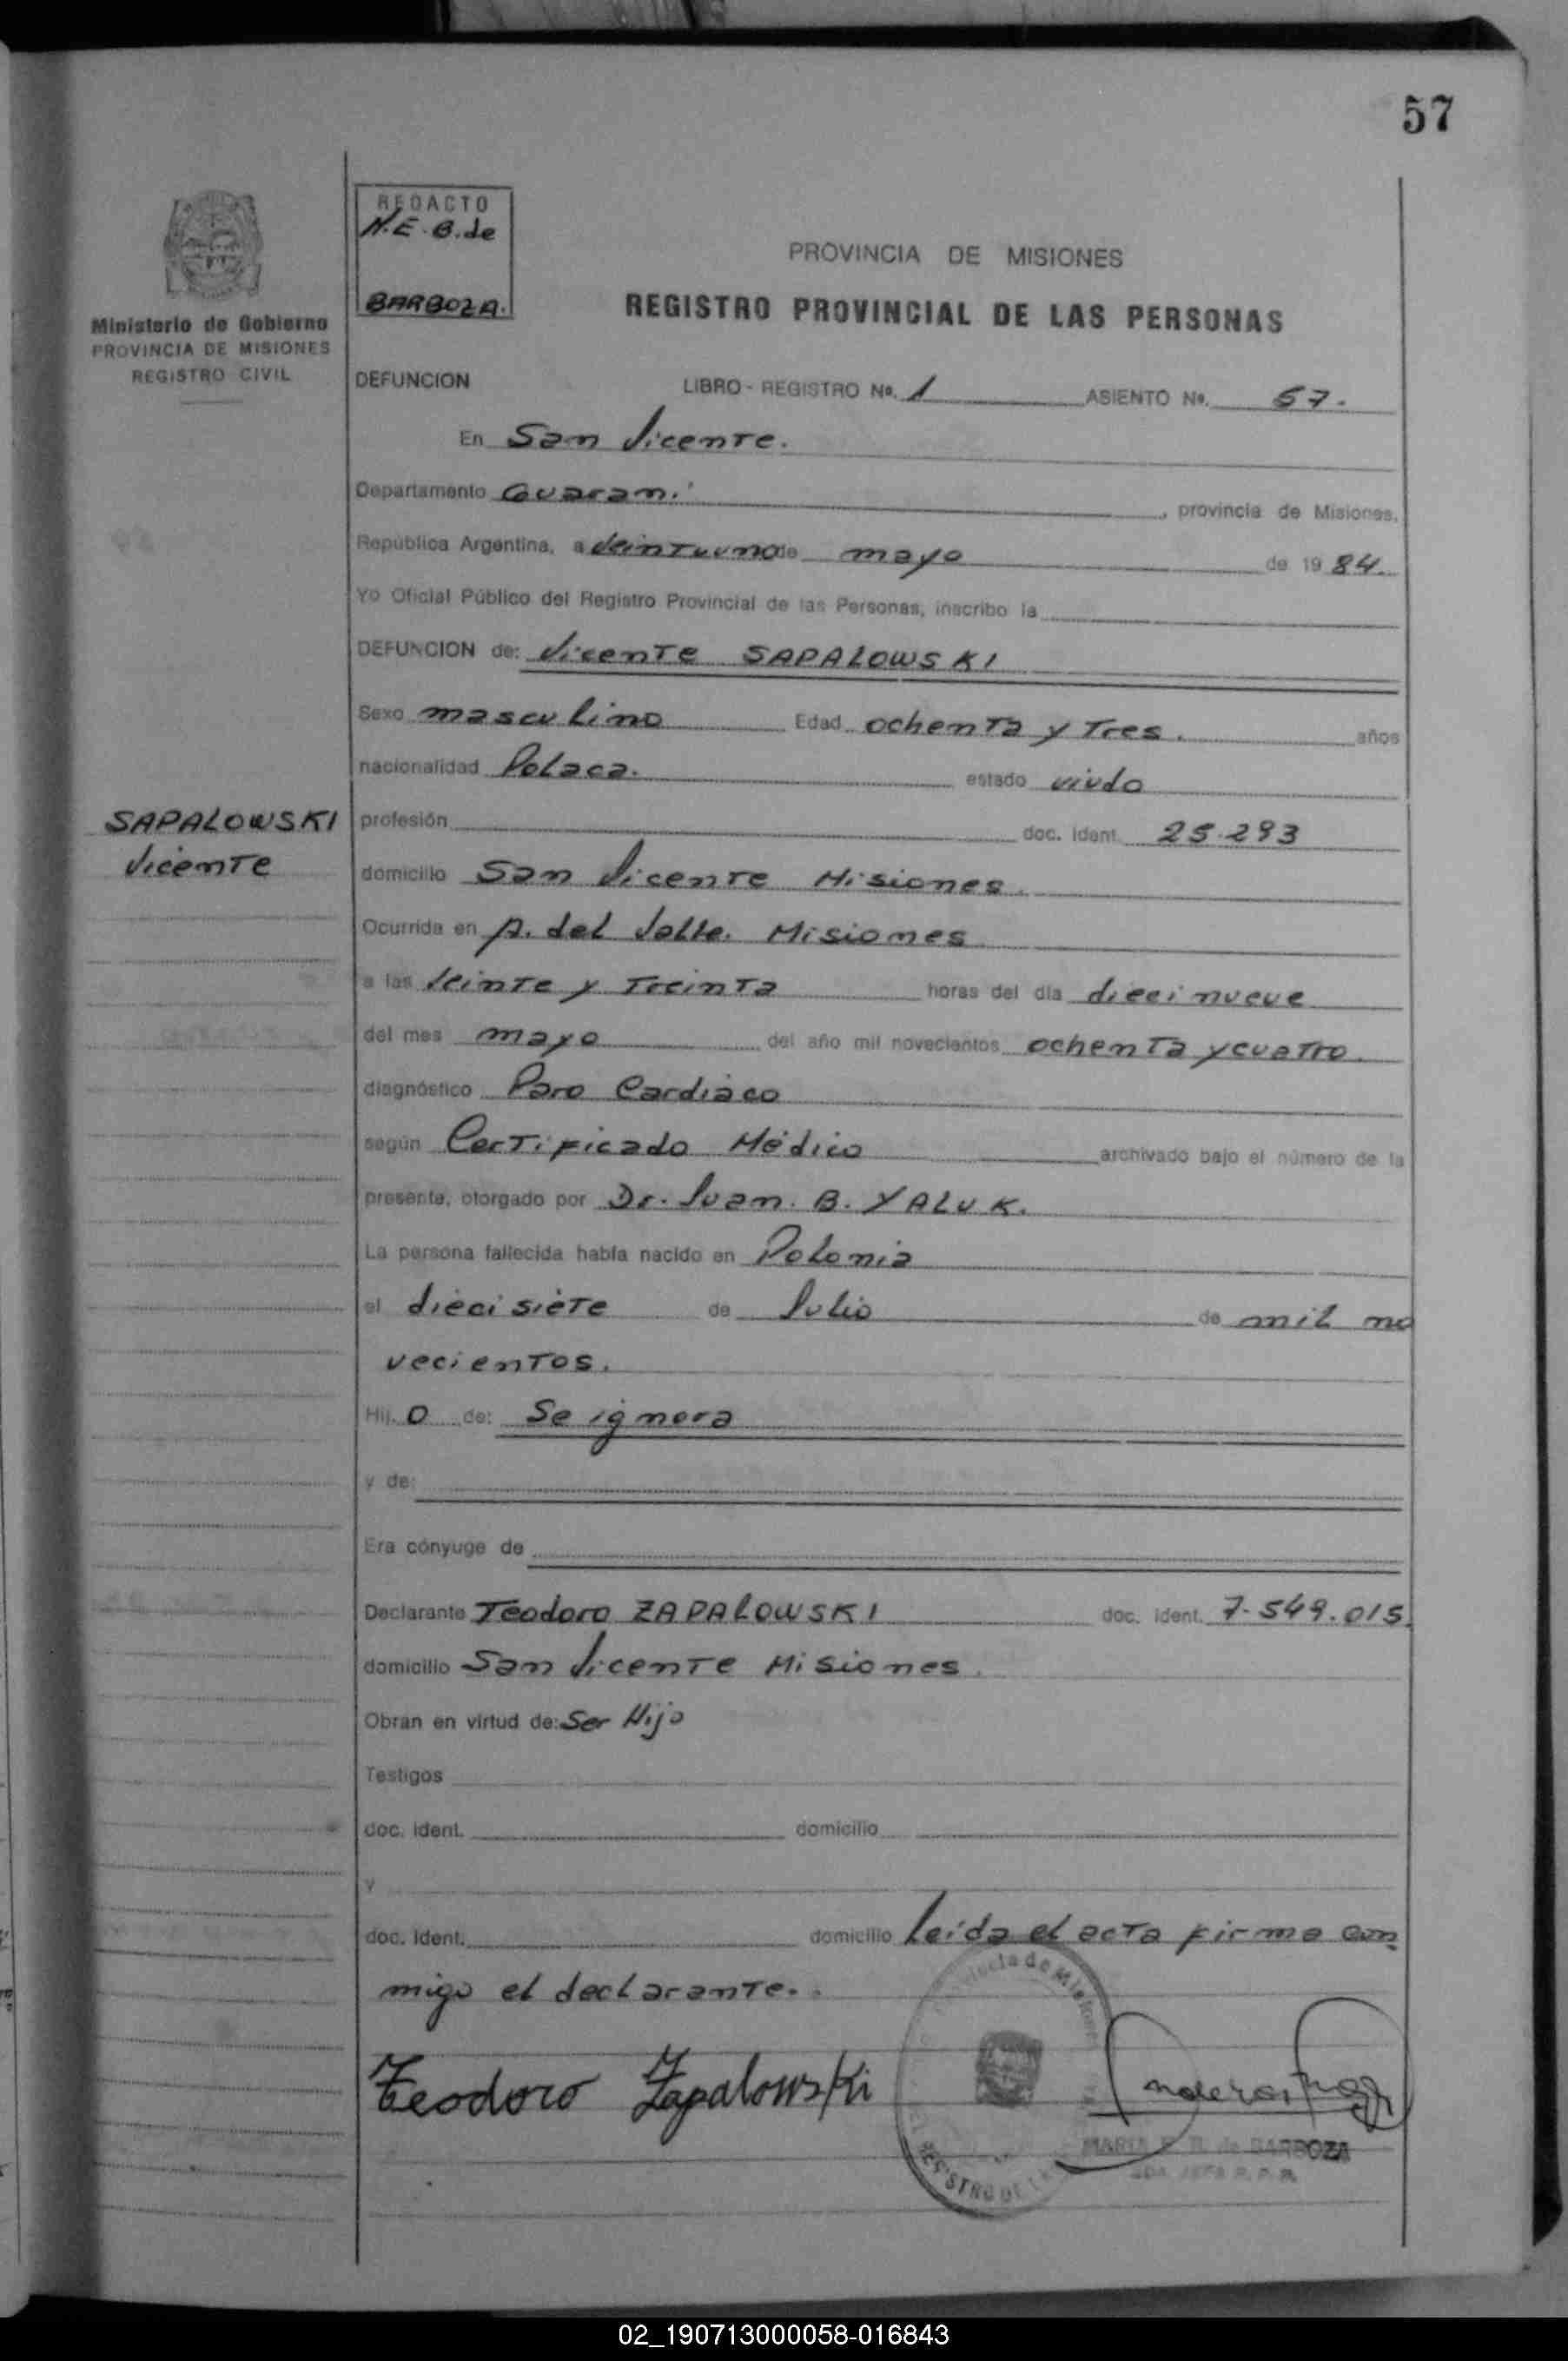 57
REDACTO
N.E.B. de
BARBOZA.
Ministerio de Gobierno
PROVINCIA DE MISIONES
REGISTRO CIVIL
PROVINCIA DE MISIONES
REGISTRO PROVINCIAL DE LAS PERSONAS
DEFUNCION LIBRO - REGISTRO No. 1 ASIENTO No. 57.
En San Vicente.
Departamento Guaraní , provincia de Misiones,
República Argentina, a Veintiuno de mayo de 1984.
Yo Oficial Público del Registro Provincial de las Personas, inscribo la
DEFUNCION de: Vicente SAPALOWSKI
Sexo masculino Edad ochenta y Tres. años
nacionalidad Polaca. estado viudo
SAPALOWSKI
Vicente
profesión doc. ident. 25.293
domicilio San Vicente Misiones.
Ocurrida en A. del Valle. Misiones
a las Veinte y Treinta horas del día diecinueve
del mes mayo del año mil novecientos ochenta y cuatro.
diagnóstico Paro Cardiaco
según Certificado Médico archivado bajo el número de la
presente, otorgado por Dr. Juan. B. YALUK.
La persona fallecida había nacido en Polonia
el diecisiete de Julio de mil no
vecientos.
Hij. o de: Se ignora
y de:
Era cónyuge de
Declarante Teodoro ZAPALOWSKI doc. ident. 7.549.015.
domicilio San Vicente Misiones.
Obran en virtud de: Ser Hijo
Testigos
doc. ident. domicilio
y
doc. ident. domicilio Leída el acta firma con
migo el declarante.
Teodoro Zapalowski
Provincia de Misiones
REGISTRO DE
MARIA E. B. de BARBOZA
02_190713000058-016843